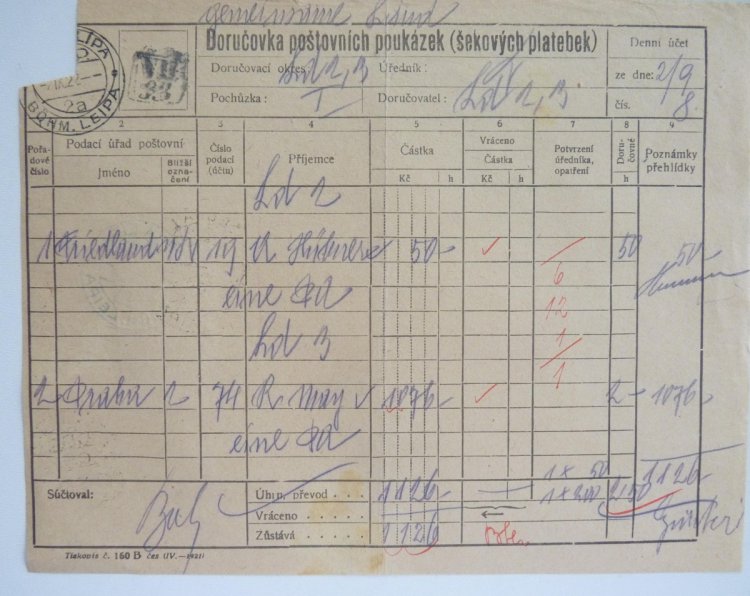 Doručovka poštovních poukázek (šekových platebek)
Doručovací okres: Ld 2, 3 Úředník:
Pochůzka: I Doručovatel: Ld 2, 3
Denní účet
ze dne: 2/9
čís. 8
LIPA
BÖHM. LEIPA
2a
VII
33
1 2 3 4 5 6 7 8 9
Pořadové číslo
Podací úřad poštovní
Jméno
Bližší označení
Číslo podací (účtu)
Příjemce
Částka
Kč h
Vráceno
Částka
Kč h
Potvrzení úředníka, opatření
Doručovné
h
Poznámky přehlídky
Ld 2
1 Friedland 19 50- 50 50-
eine
6
12
Ld 3
1
1
2 Praha 2 74 R May 1076- 2- 1076-
eine
Súčtoval:
Úhrn, převod 1126- 1 x 50 2,50 1126-
1 x 200
Vráceno
Zůstává 1126
Tiskopis č. 160 B čes (IV.—1921)